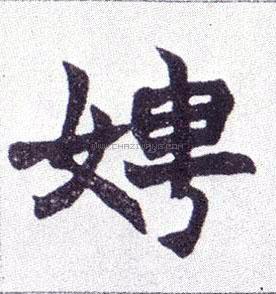 娉
WWW.CHAZIDIAN.COM